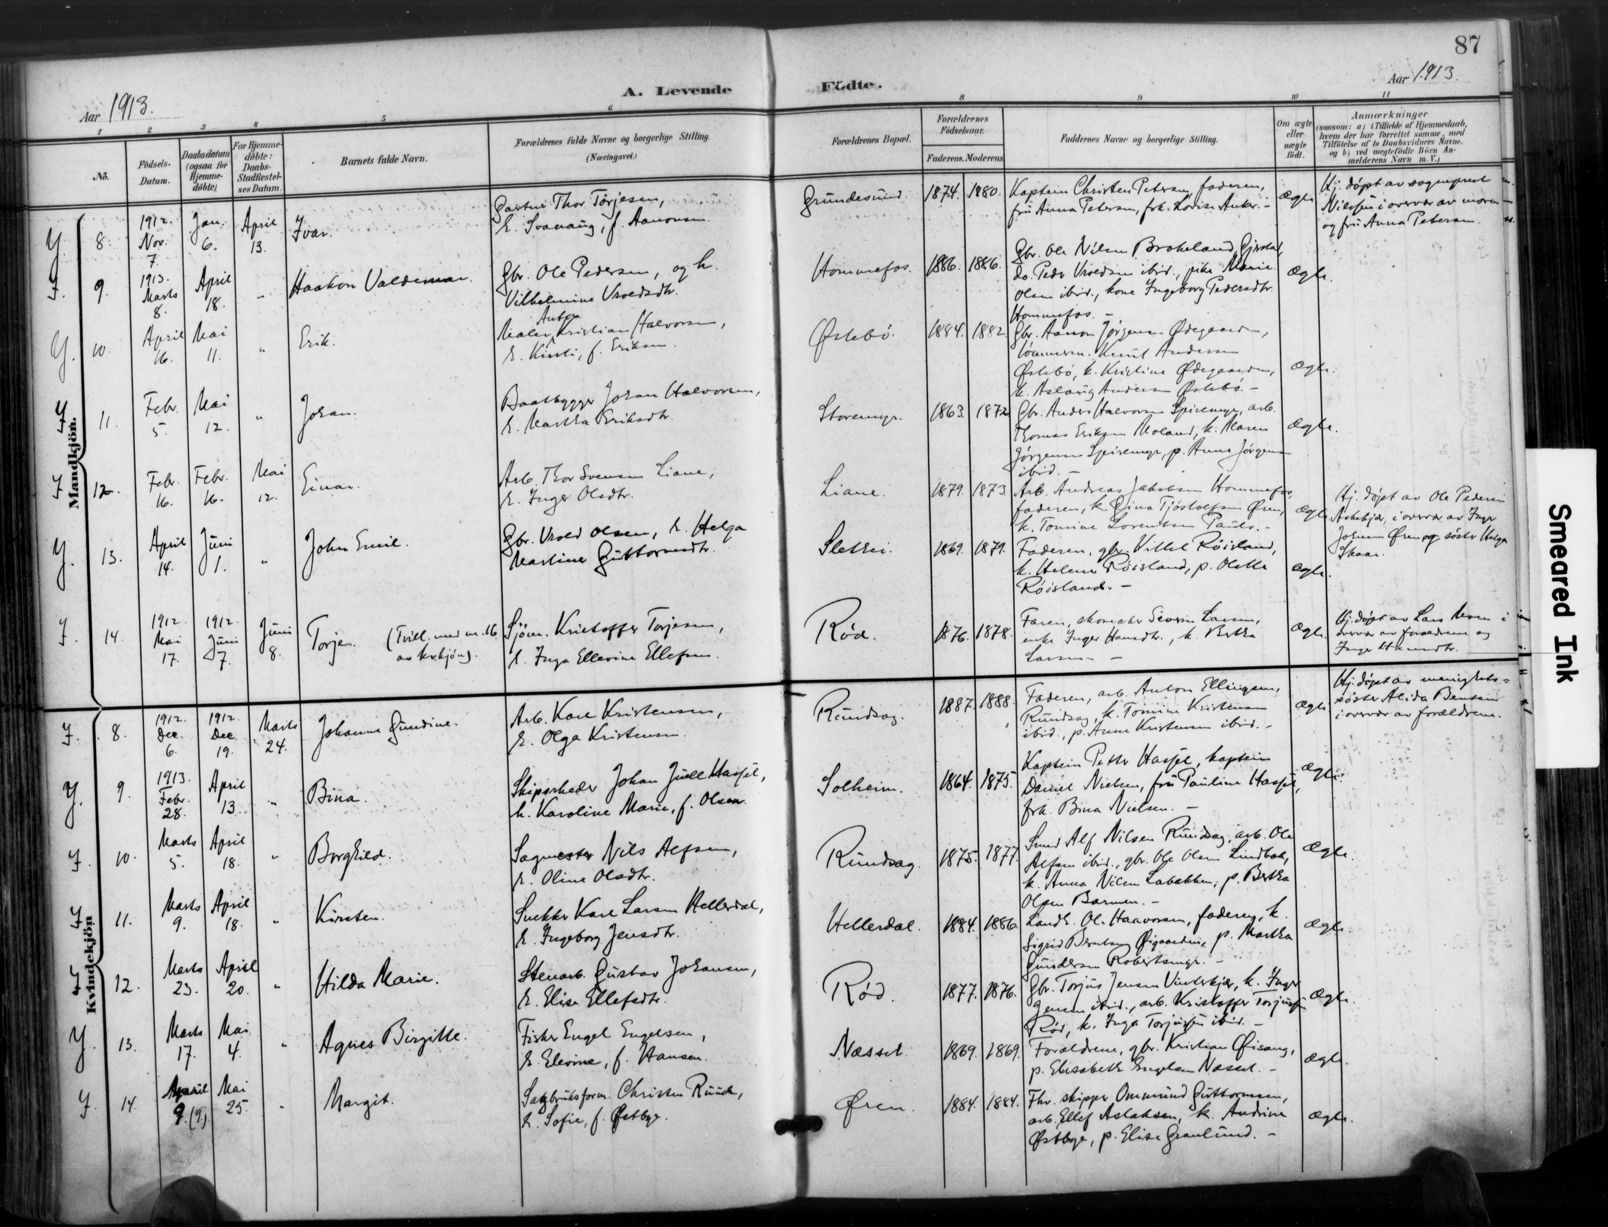 87
Aar 1913.
A. Levende Fødte.
Aar 1913.
1 2 3 4 5 6 8 9 10 11
No.
Fødsels-Datum.
Daabsdatum (ogsaa for Hjemmedøbte)
For Hjemmedøbte: Daabs-Stadfæstelses Datum.
Barnets fulde Navn.
Forældrenes fulde Navne og borgerlige Stilling. (Næringsvei.)
Forældrenes Bopæl.
Forældrenes Fødselsaar.
Faderens. Moderens.
Faddernes Navne og borgerlige Stilling.
Om ægte eller uægte født.
Anmærkninger
Mandkjøn.
8. 1912. Nov. 7. Jan. 6. April 13. Ivar.
Thor Torjesen,
E. Svanaug, f. Aanonsen
Grundesund. 1874. 1880.
Kaptein Christen Petersen, faderen,
fru Anna Petersen, frk. Lovise
ægte
Hj. døpt av sogneprest
Nilssen i overvær av moren
og fru Anna Petersen.
9. 1913. Marts 8. April 18. " Haakon Valdemar.
Gbr. Ole Pedersen, og h.
Vilhelmine Vroldsdtr.
Hommefos. 1886. 1886.
Gbr. Ole Nilsen Brokeland, Gjerstad,
do. Peder Vroldsen ibid., pike Marie
Olsen ibid., kone Ingeborg Pedersdtr.
Hommefos. -
ægte.
10. April 16. Mai 11. " Erik.
Anton
Maler Kristian Halvorsen,
E. Kirsti, f. Eriksen.
Østebö. 1884. 1882
Gbr. Aanon Jørgensen Ødegaarden,
tömmerm. Knut Andersen
Østebö, k. Kristine Ødegaarden,
k. Aslaug Andersen Østebö. -
ægte.
11. Febr. 5. Mai 12. " Johan.
Baatbygger Johan Halvorsen,
E. Martha Eriksdtr.
Storemyr. 1863. 1872
Gbr. Anders Halvorsen Spiremyr, arb.
Thomas Eriksen Moland, k. Maren
Jørgensen Spiremyr, p. Anna Jørgensen
ibid. -
ægte.
12. Febr. 16. Febr. 16. Mai 12. Einar.
Arb. Thor Svensen Liane,
E. Inger Olsdtr.
Liane. 1879. 1873.
Arb. Andreas Jakobsen Hommefos,
faderen, k. Gina Tjöstolfsen Øren,
k. Tomine Lorentsen
ægte
Hj. døpt av Ole Pedersen
Askekjær, i overvær av Inger
Johnsen Øren og søster Helga
Skaar.
13. April 14. Juni 1. " John Emil.
Gbr. Vrold Olsen, E. Helga
Martine Guttormsdtr.
Slettei. 1869. 1879.
Faderen, gbr. Villet Røisland,
k. Helene Røisland, p. Olette
Røisland. -
ægte.
14. 1912. Mai 17. 1912. Juni 7. Juni 8. Torje. (Tvill. med nr. 16 av kv.kjøn).
Sjöm. Kristoffer Torjesen,
E. Inga Ellevine Ellefsen.
Rød. 1876. 1878.
Faren, skomaker Severin Larsen,
enke Inger Hansdtr., k. Bertha
Larsen -
ægte
Hj. døpt av Lars Moren i
overvær av forældrene og
Inger
Kvindekjön
8. 1912. Dec. 6. 1912. Dec. 19. Marts 24. Johanne Gundine.
Arb. Karl Kristensen,
E. Olga Kristensen.
Rundsag. 1887. 1888.
Faderen, arb. Anton Ellingsen,
Rundsag, k. Tomine Kristensen
ibid., p. Anne Kristensen ibid. -
ægte
Hj. døpt av menighets-
søster Alida Bentsen
i overvær av forældrene.
9. 1913. Febr. 28. April 13. " Bina.
Skipsreder Johan Juell Hassel,
h. Karoline Marie, f. Olsen
Solheim. 1864. 1875.
Kaptein Petter Hassel, kaptein
Daniel Nielsen, fru Pauline Hassel,
frk. Bina Nielsen. -
ægte.
10. Marts 5. April 18. " Borghild.
Sagmester Nils Alfsen,
E. Oline Olsdtr.
Rundsag. 1875. 1877.
Smed Alf Nilsen Rundsag, arb. Ole
Alfsen ibid., gbr. Ole Olsen Lindbak,
k. Anna Nilsen Labakken, p. Bertha
Olsen Barmen. -
ægte.
11. Marts 9. April 18. " Kirsten.
Snekker Karl Larsen Hellerdal,
E. Ingeborg Jensdtr.
Hellerdal. 1884. 1886.
Landh. Ole Haavorsen, faderen, k.
Sigrid Berntsen p. Martha
Gundersen Robertsmyr. -
ægte.
12. Marts 23. April 20. " Hilda Marie.
Stenarb. Gustav Johansen,
E. Elise Ellefsdtr.
Rød. 1877. 1876.
Gbr. Torjus Jensen Vinterkjær, k. Inger
Jensen ibid., arb. Kristoffer Torjussen
Rød, k. Inga Torjussen ibid. -
ægte.
13. Marts 17. Mai 4. " Agnes Birgitte.
Fisker Engel Engelsen,
E. Elevine, f. Hansen.
Næsset. 1869. 1869.
Forældrene, gbr. Kristian
p. Elisabeth Engelsen Næsset. -
ægte.
14. April 9. (?). Mai 25. " Margit.
Sagbruksform. Christen Ruud,
h. Sofie, f. Østbye.
Øren. 1884. 1884.
Fhv. skipper Ommund Guttormsen,
arb. Ellef Aslaksen, k. Andrine
Østbye, p. Elise Granlund. -
ægte.
Smeared Ink